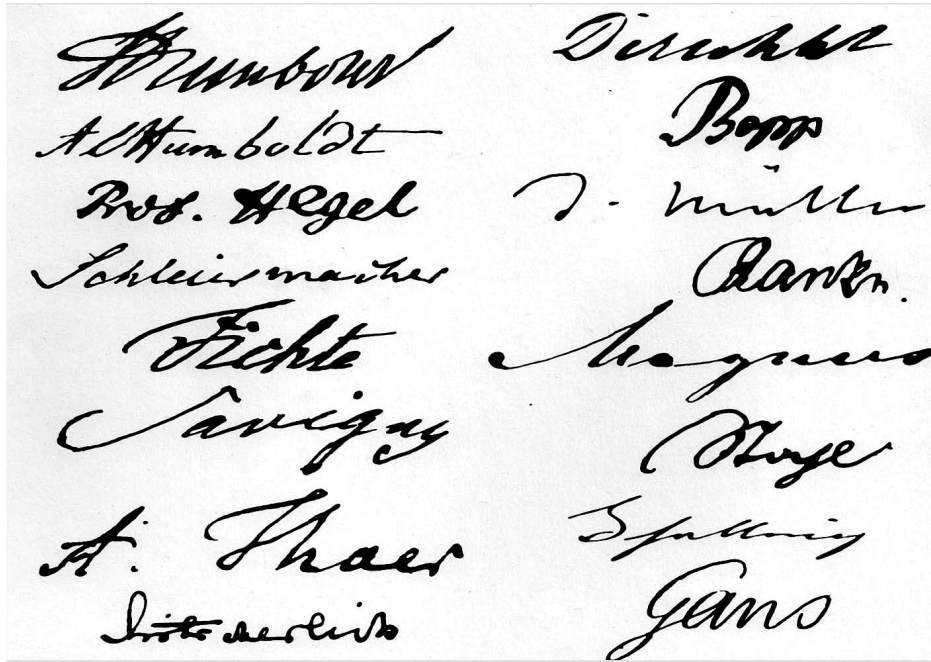 Humboldt
AlHumboldt
Prof. Hegel
Schleiermacher
Fichte
Savigny
A. Thaer
Mitscherlich
Dirichlet
Bopp
J. Müller
Ranke.
Magnus
Schelling
Gans